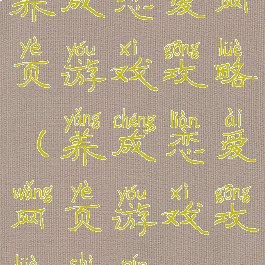 养成恋爱网
yè yóu xì gōng lüè
页游戏攻略
yǎng chéng liàn ài
（养成恋爱
wǎng yè yóu xì gōng
网页游戏攻